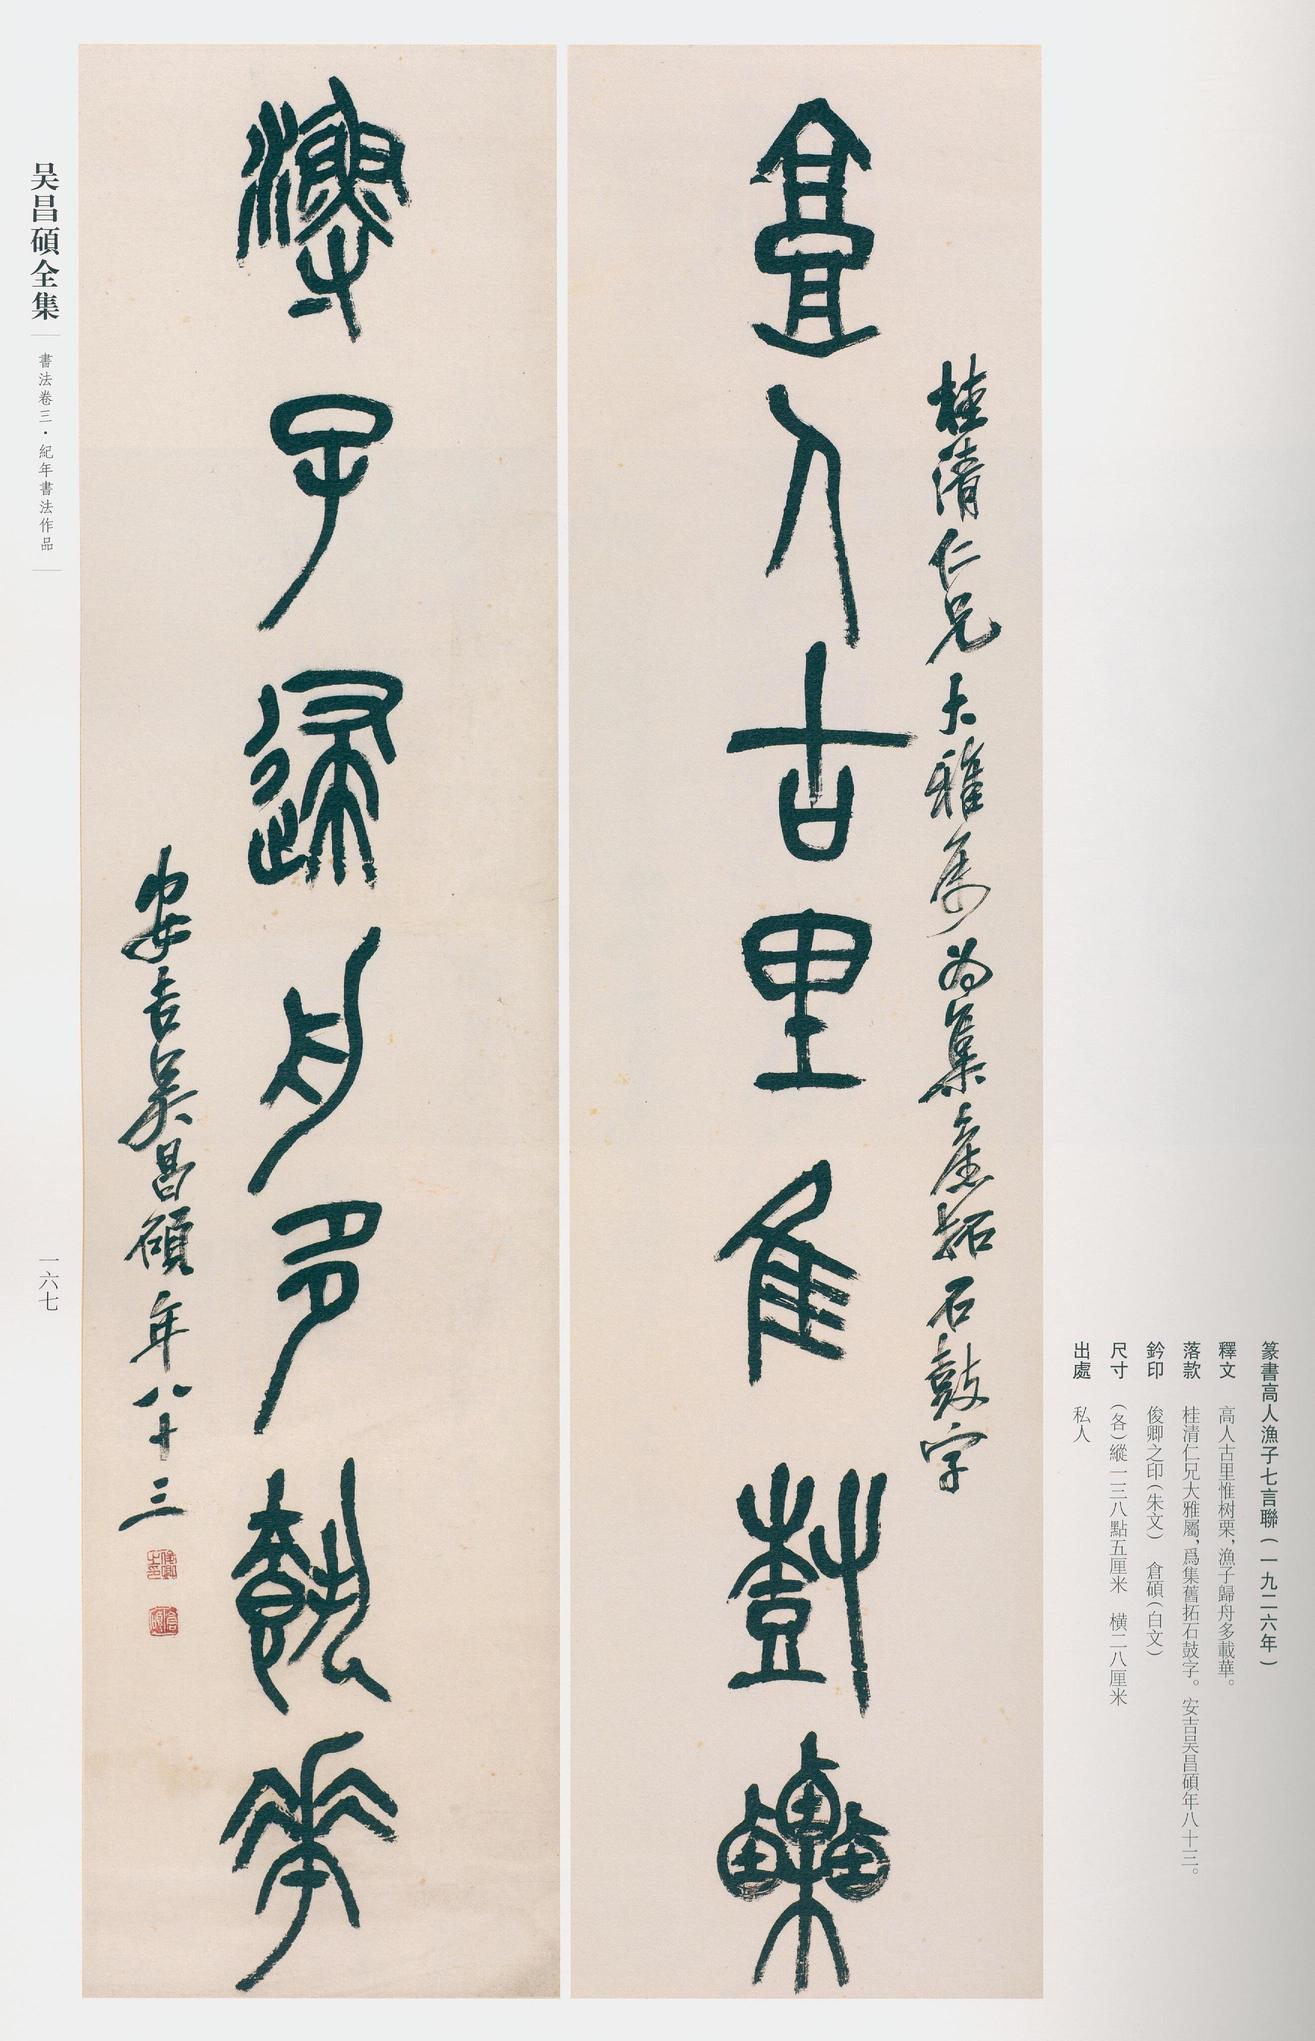 篆書高人漁子七言聯（一九二六年）
釋文　高人古里惟树栗，漁子歸舟多載華。
落款　桂清仁兄大雅屬，爲集舊拓石鼓字。安吉吴昌碩年八十三。
鈐印　俊卿之印（朱文）　倉碩（白文）
尺寸　（各）縱一三八點五厘米　橫二八厘米
出處　私人
桂清仁兄大雅屬為集舊拓石鼓字
高人古里隹樹栗
漁子歸舟多載華
安吉吴昌碩年八十三
俊卿之印
倉碩
吴昌碩全集
書法卷三·紀年書法作品
一六七